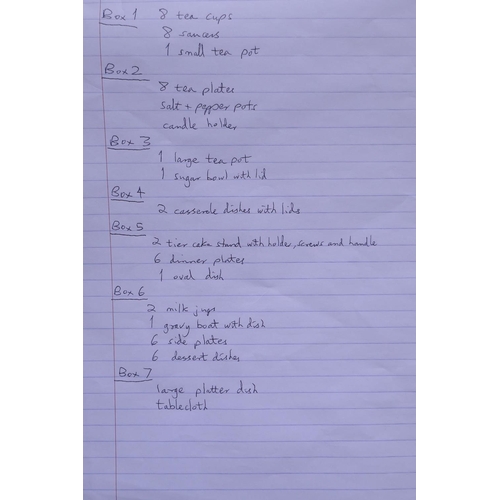 Box 1 8 tea cups
8 saucers
1 small tea pot
Box 2
8 tea plates
salt + pepper pots
candle holder
Box 3
1 large tea pot
1 sugar bowl with lid
Box 4
2 casserole dishes with lids
Box 5
2 tier cake stand with holder, screws and handle
6 dinner plates
1 oval dish
Box 6
2 milk jugs
1 gravy boat with dish
6 side plates
6 dessert dishes
Box 7
large platter dish
tablecloth